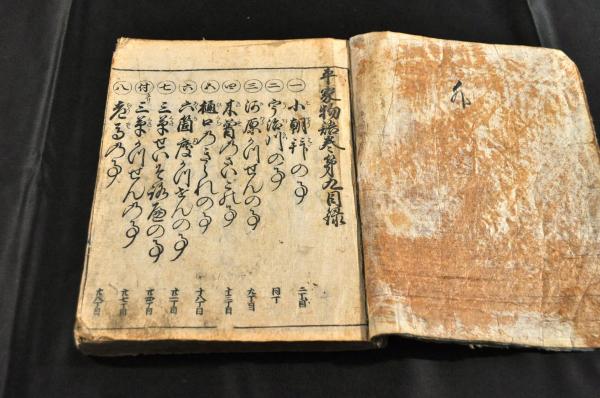 平家物語巻第九目録
一 小朝拝の事 二丁目
二 宇治川の事 同丁
三 河原かつせんの事 九丁目
四 木曽のさいごの事 十二丁目
五 樋口のきられの事 十八丁目
六 六箇度かつせんの事 廿一丁目
七 三草せいぞろへの事 廿四丁目
付 三草かつせんの事 廿七丁目
八 老馬の事 廿八丁目